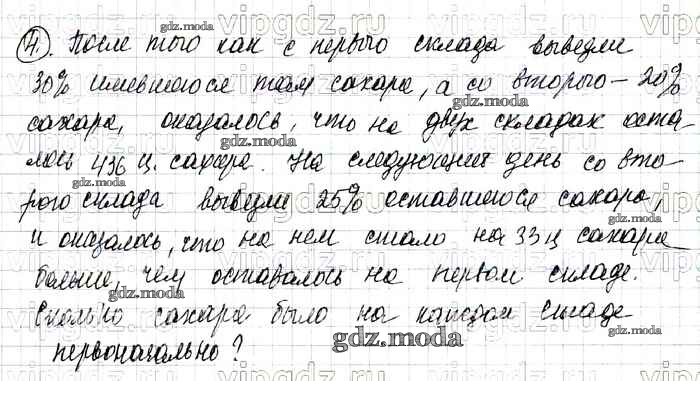 4. После того как с первого склада вывезли
30% имевшегося там сахара, а со второго – 20%
сахара, оказалось, что на двух складах оста-
лось 436 ц. сахара. На следующий день со вто-
рого склада вывезли 25% оставшегося сахара,
и оказалось, что на нем стало на 33 ц сахара
больше, чем оставалось на первом складе.
Сколько сахара было на каждом складе
первоначально?
gdz.moda
gdz.moda
gdz.moda
gdz.moda
gdz.moda
gdz.moda
gdz.moda
gdz.moda
gdz.moda
vipgdz.ru